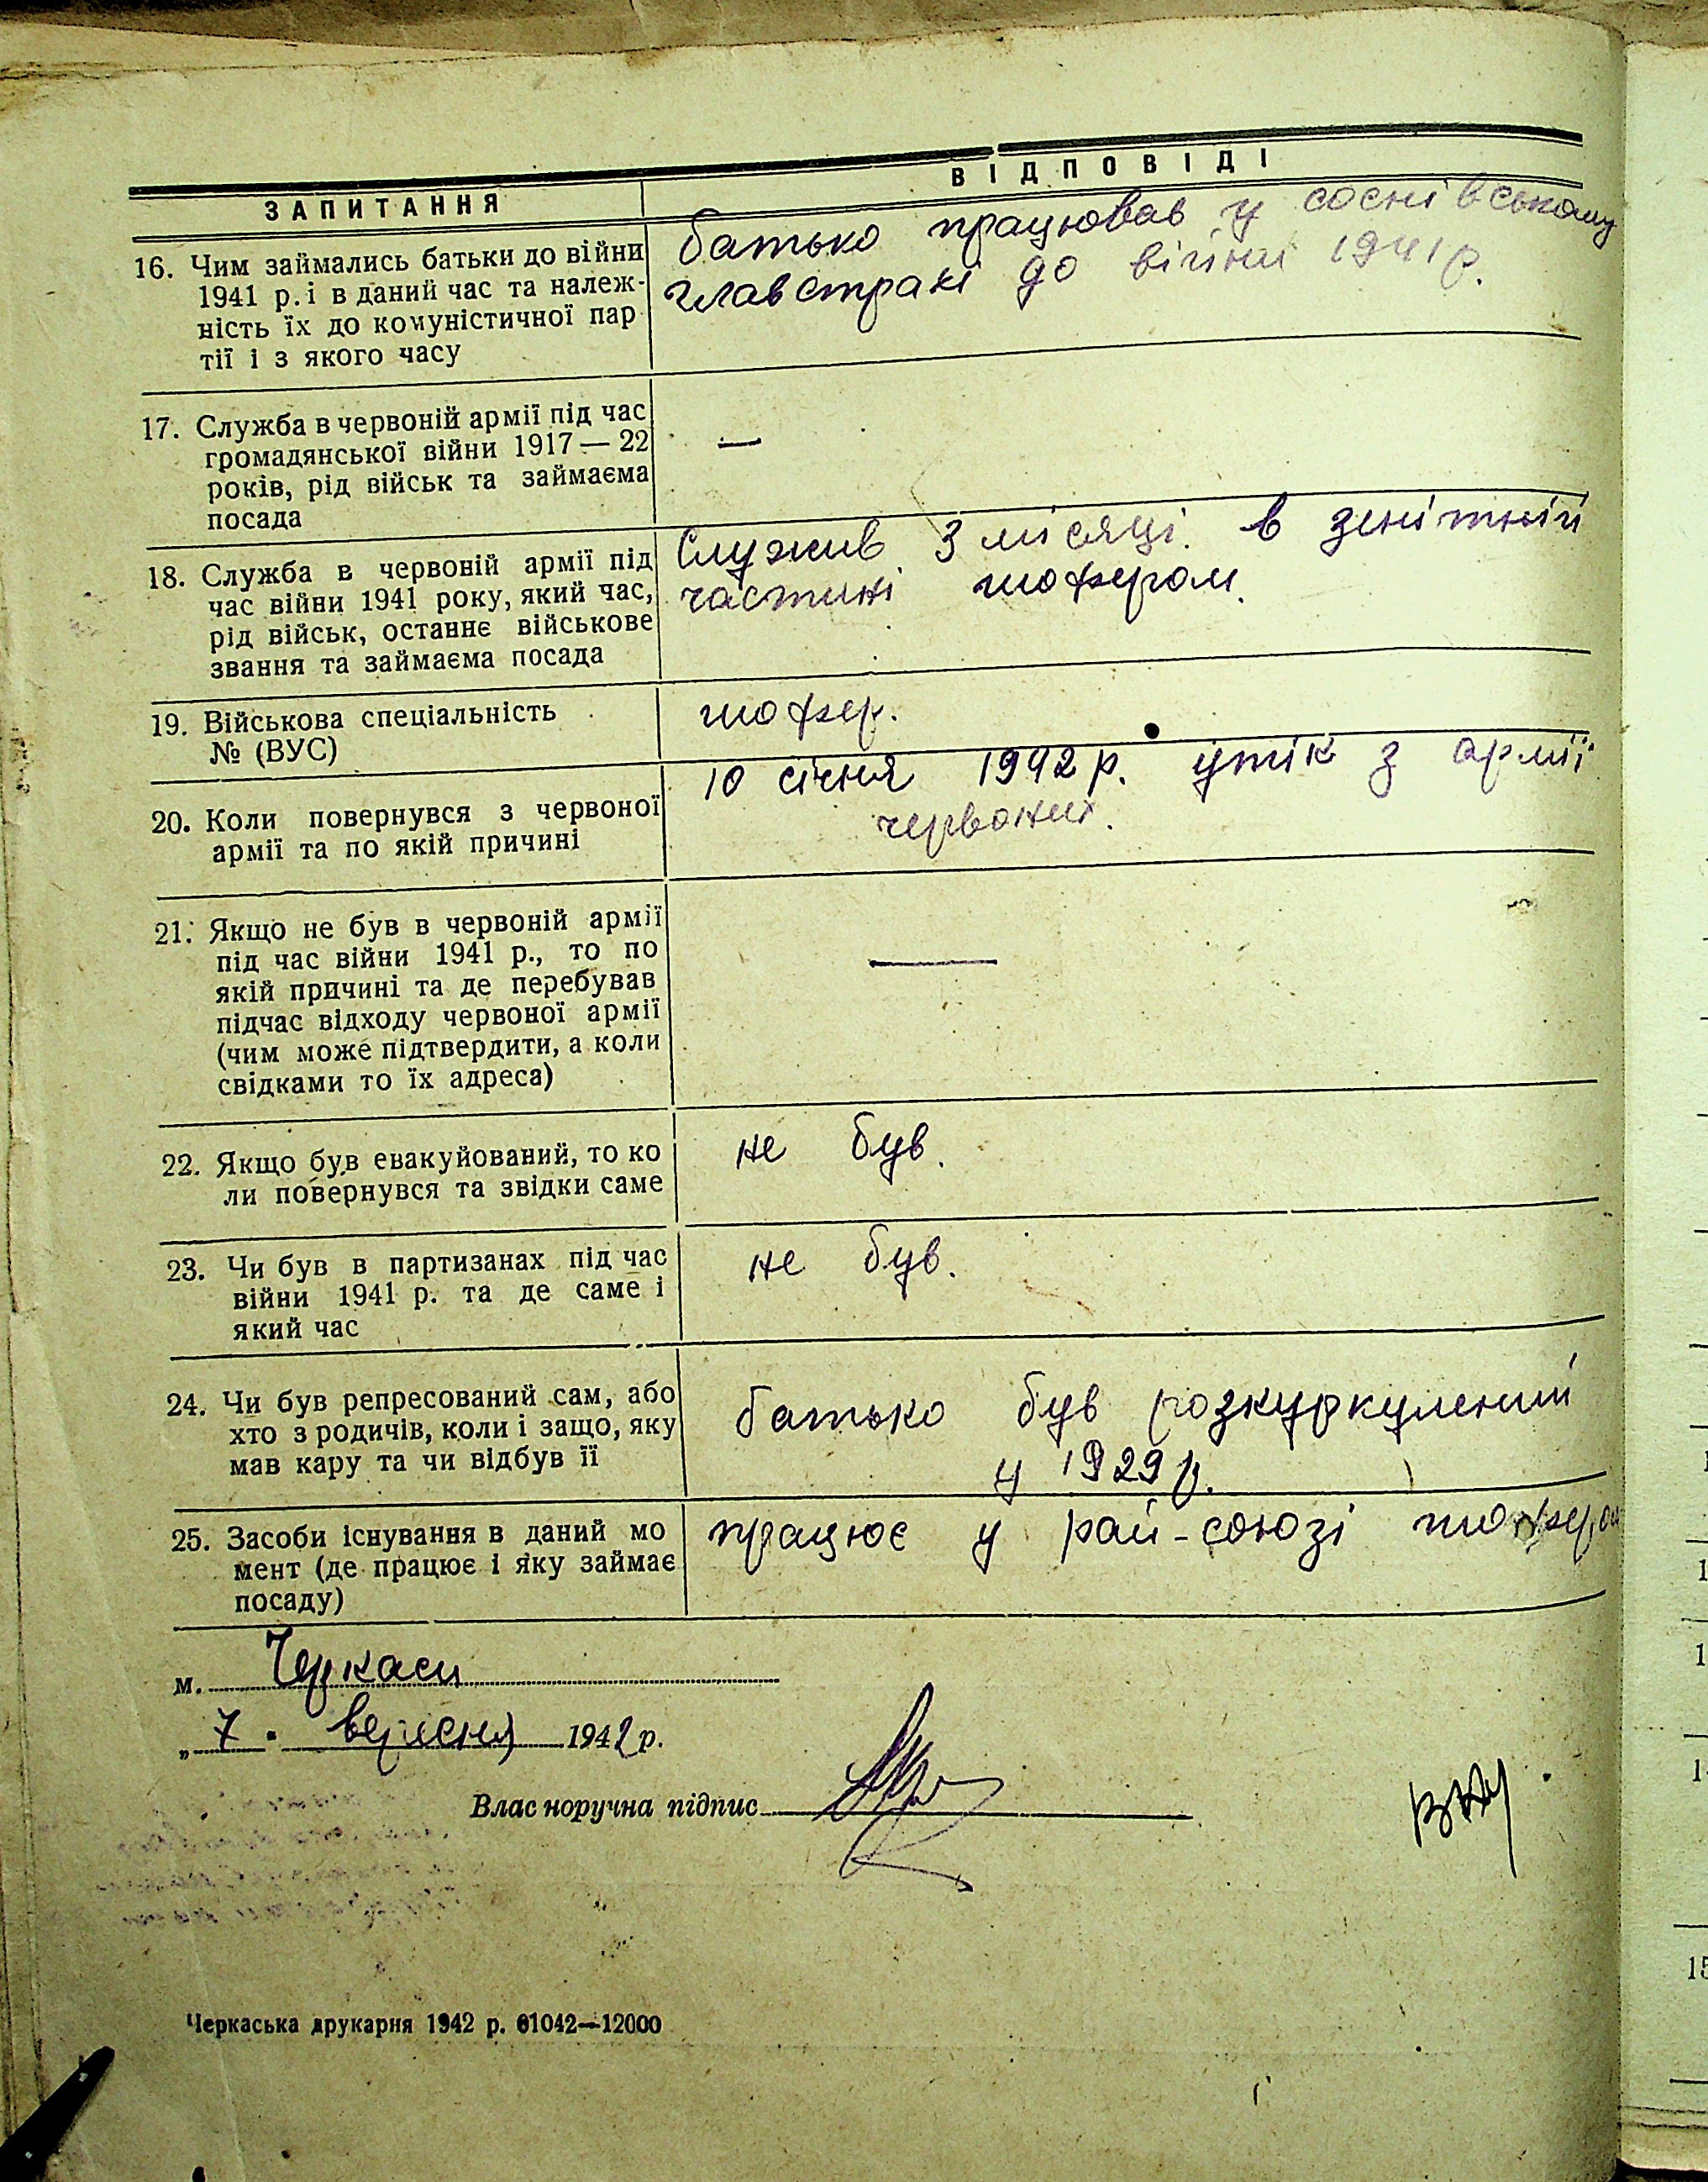 ЗАПИТАННЯ
ВІДПОВІДІ
16. Чим займались батьки до війни
1941 р. і в даний час та належ-
ність їх до комуністичної пар
тії і з якого часу
батько працював у соснівському
главстракі до війни 1941 р.
17. Служба в червоній армії під час
громадянської війни 1917 — 22
років, рід військ та займаєма
посада
—
18. Служба в червоній армії під
час війни 1941 року, який час,
рід військ, останнє військове
звання та займаєма посада
Служив 3 місяці. в зенітній
частині шофером.
19. Військова спеціальність
№ (ВУС)
шофер.
20. Коли повернувся з червоної
армії та по якій причині
10 січня 1942 р. утік з армії
червоних.
21. Якщо не був в червоній армії
під час війни 1941 р., то по
якій причині та де перебував
підчас відходу червоної армії
(чим може підтвердити, а коли
свідками то їх адреса)
—
22. Якщо був евакуйований, то ко
ли повернувся та звідки саме
не був.
23. Чи був в партизанах під час
війни 1941 р. та де саме і
який час
не був.
24. Чи був репресований сам, або
хто з родичів, коли і защо, яку
мав кару та чи відбув її
батько був розкуркулений
у 1929 р.
25. Засоби існування в даний мо
мент (де працює і яку займає
посаду)
працює у рай-союзі шофером
м. Черкаси
„ 7 " вересня 1942 р.
Власноручна підпис
Черкаська друкарня 1942 р. 61042—12000